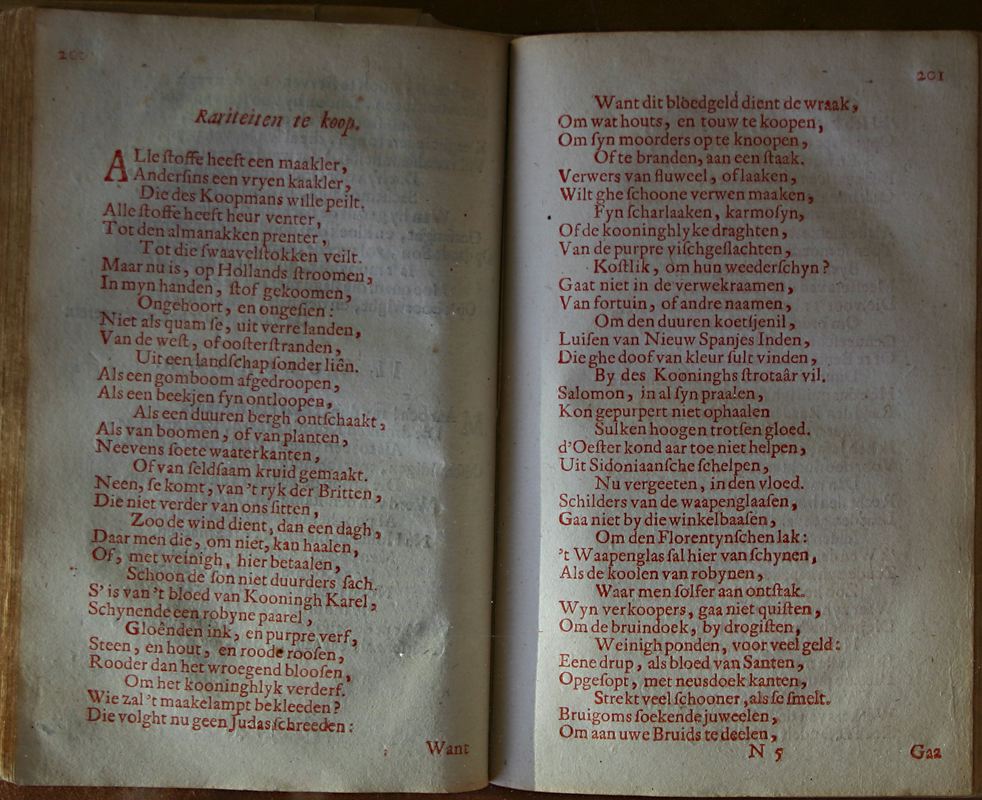 Rariteiten te koop.
ALle ſtoffe heeft een maakler,
Anderſins een vryen kaakler,
Die des Koopmans wille peilt.
Alle ſtoffe heeft heur venter,
Tot den almanakken prenter,
Tot die ſwaavelſtokken veilt.
Maar nu is, op Hollands ſtroomen,
In myn handen, ſtof gekoomen,
Ongehoort, en ongeſien:
Niet als quam ſe, uit verre landen,
Van de weſt, of ooſterſtranden,
Uit een landſchap ſonder liên.
Als een gomboom afgedroopen,
Als een beekjen fyn ontloopen,
Als een duuren bergh ontſchaakt,
Als van boomen, of van planten,
Neevens ſoete waaterkanten,
Of van ſeldſaam kruid gemaakt.
Neen, ſe komt, van 't ryk der Britten,
Die niet verder van ons ſitten,
Zoo de wind dient, dan een dagh,
Daar men die, om niet, kan haalen,
Of, met weinigh, hier betaalen,
Schoon de ſon niet duurders ſach.
S' is van 't bloed van Kooningh Karel,
Schynende een robyne paarel,
Gloênden ink, en purpre verf,
Steen, en hout, en roode rooſen,
Rooder dan het wroegend blooſen,
Om het kooninghlyk verderf.
Wie zal 't maakelampt bekleeden?
Die volght nu geen Judasſchreeden:
Want
201
Want dit bloedgeld dient de wraak,
Om wat houts, en touw te koopen,
Om ſyn moorders op te knoopen,
Of te branden, aan een ſtaak.
Verwers van fluweel, of laaken,
Wilt ghe ſchoone verwen maaken,
Fyn ſcharlaaken, karmoſyn,
Of de kooninghlyke draghten,
Van de purpre viſchgeſlachten,
Koſtlik, om hun weederſchyn?
Gaat niet in de verwekraamen,
Van fortuin, of andre naamen,
Om den duuren koetſjenil,
Luiſen van Nieuw Spanjes Inden,
Die ghe doof van kleur ſult vinden,
By des Kooninghs ſtrotaâr vil.
Salomon, in al ſyn praalen,
Kon gepurpert niet ophaalen
Sulken hoogen trotſen gloed.
d'Oeſter kond aar toe niet helpen,
Uit Sidoniaanſche ſchelpen,
Nu vergeeten, in den vloed.
Schilders van de waapenglaaſen,
Gaa niet by die winkelbaaſen,
Om den Florentynſchen lak:
't Waapenglas ſal hier van ſchynen,
Als de koolen van robynen,
Waar men ſolfer aan ontſtak.
Wyn verkoopers, gaa niet quiſten,
Om de bruindoek, by drogiſten,
Weinigh ponden, voor veel geld:
Eene drup, als bloed van Santen,
Opgeſopt, met neusdoek kanten,
Strekt veel ſchooner, als ſe ſmelt.
Bruigoms ſoekende juweelen,
Om aan uwe Bruids te deelen,
N 5 Gaa